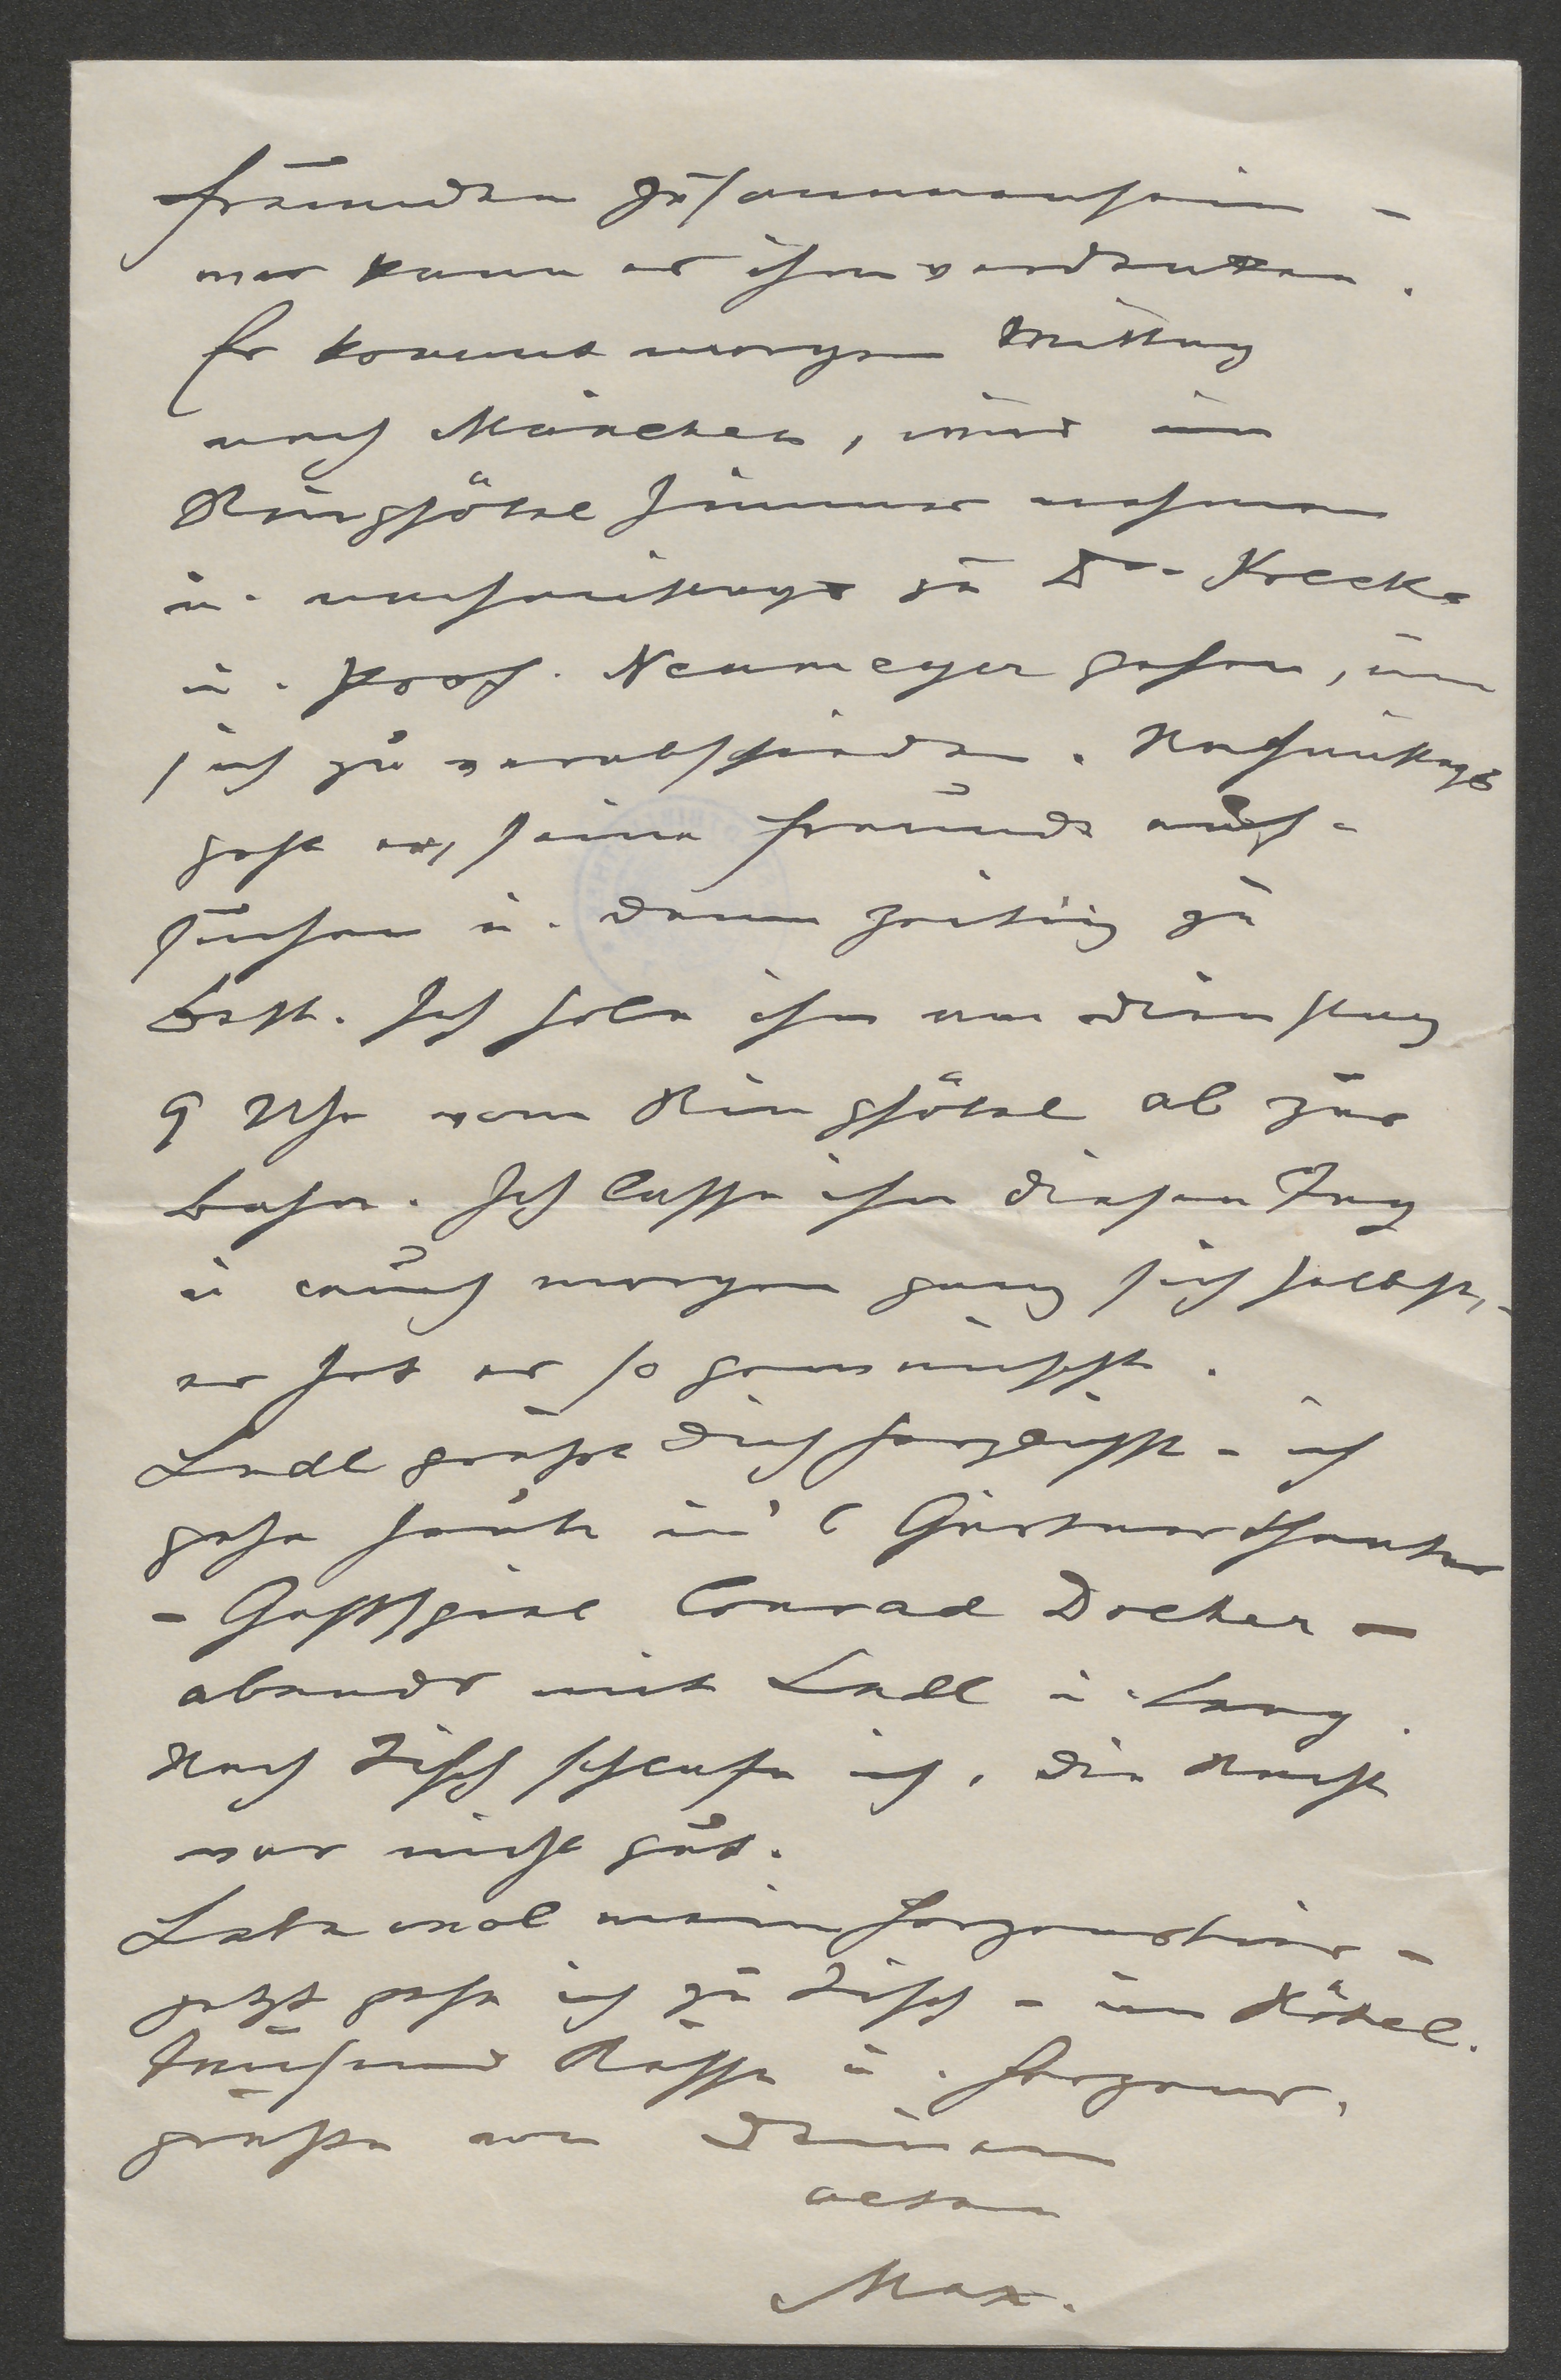 Freunden zusammensein –
wer kann es ihm verdenken.
Er kommt morgen Mittag
nach München, wird im
Ringhôtel Zimmer nehmen
u. nachmittags zu Dr. Krecke
u. Prof. Neumeyer gehen, um
sich zu verabschieden. Nachmittags
geht er, seine Freunde auf-
suchen u. dann zeitig zu
Bett. Ich hole ihn am Dienstag
9 Uhr vom Ringhôtel ab zur
Bahn. Ich lasse ihn diesen Tag
u auch morgen ganz sich selbst, –
er hat es so gewünscht.
Ladl grüßt Dich herzlichst – ich
gehe heute in's Gärtnertheater
– Gastspiel Conrad Dreher –
abends mit Ladl u. Lang.
Nach Tisch schlafe ich, die Nacht
war nicht gut.
Lebe wol mein Herzenstier –
jetzt gehe ich zu Tisch – im Hôtel.
Tausend Küsse u. Herzens-
grüße von Deinem
alten
Max.